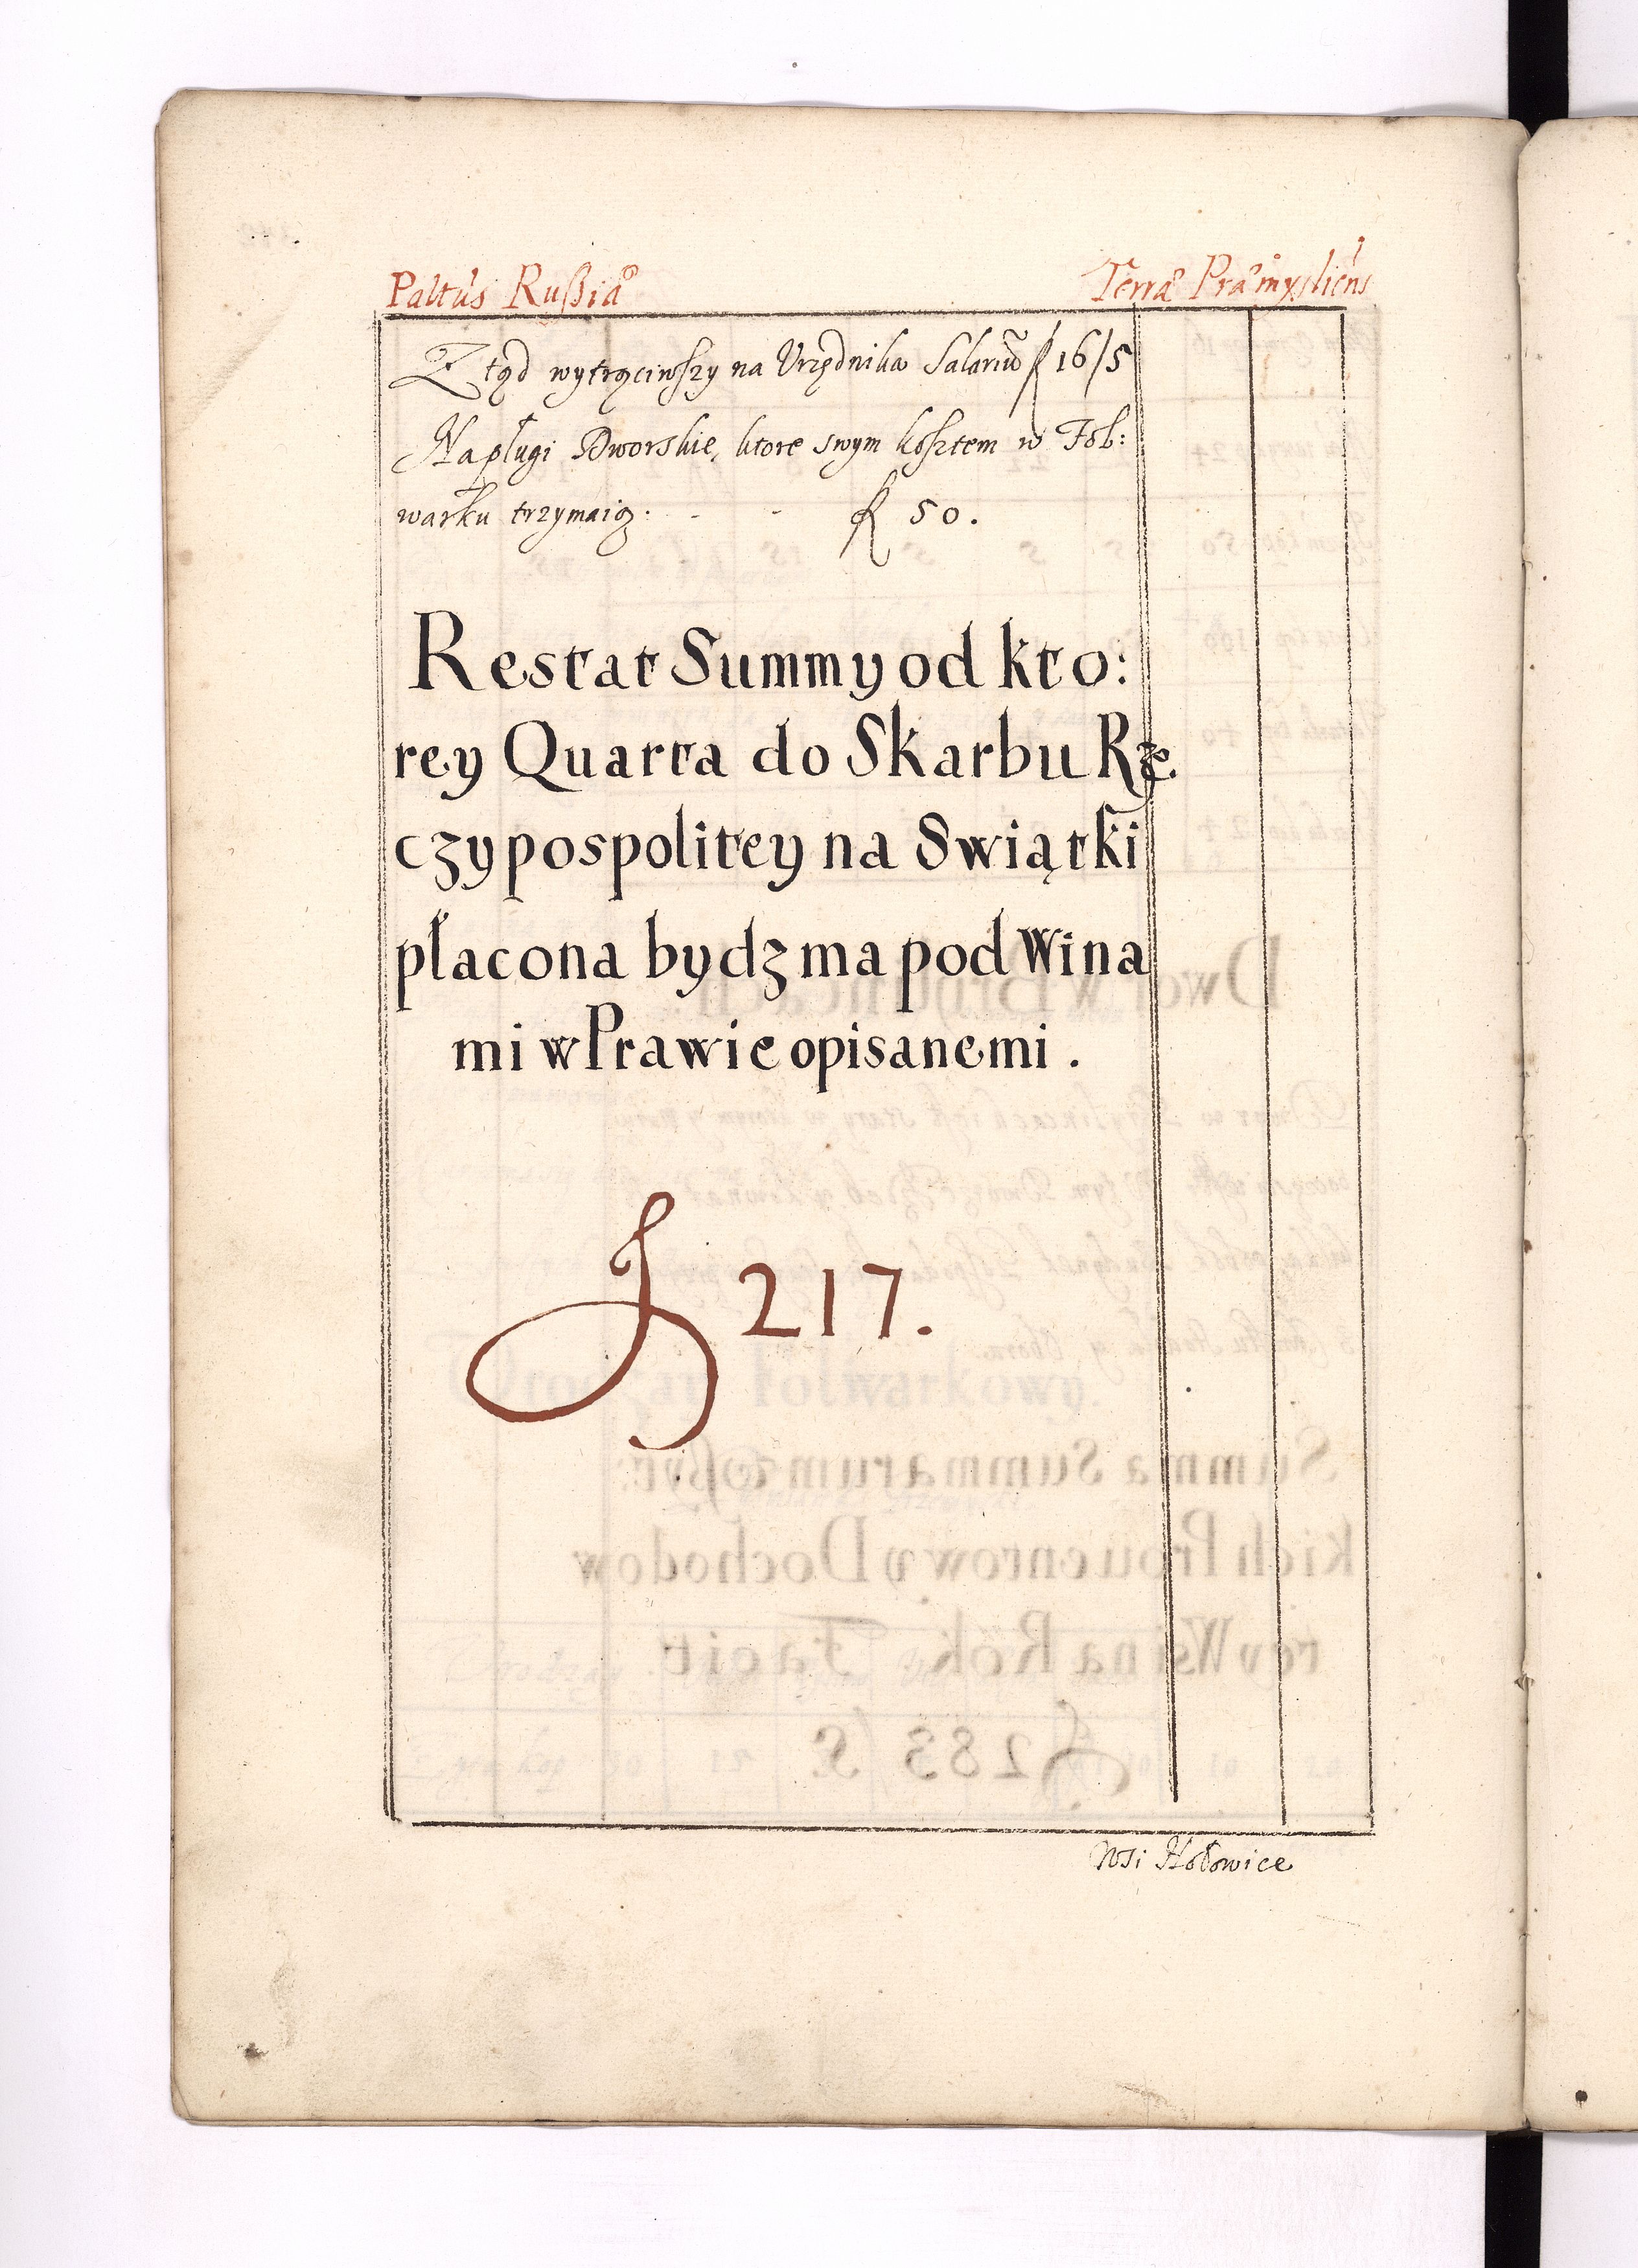 Paltus Rußiæ Terræ Præmysliens
Ztąd wytrąciwszy na Urzędnika Salariu fl 16/5
Na pługi Dworskie, ktore swym kosztem w Fol:
warku trzymaią. - - fl 50.
Restat Summy od kto:
rey Quarta do Skarbu Rze.
czypospolitey na Swiątki
płacona bydz ma pod Wina
mi w Prawie opisanemi.
fl 217.
Wsi Hołowice